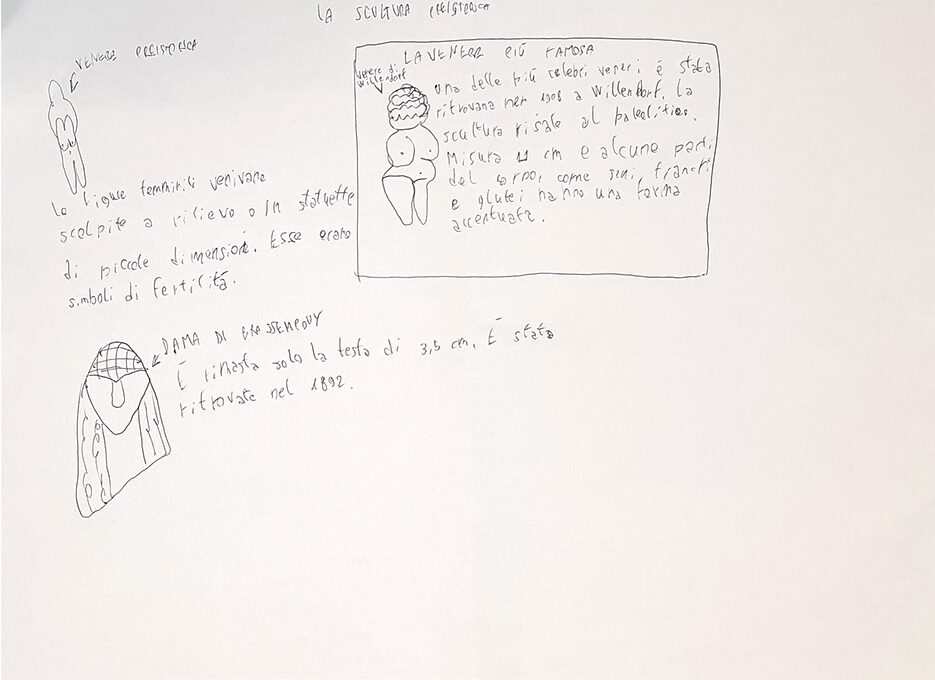 LA SCULTURA PREISTORICA
VENERE PREISTORICA
Le figure femminili venivano
scolpite a rilievo o in statuette
di piccole dimensioni. Esse erano
simboli di fertilità.
LA VENERE PIÙ FAMOSA
Venere di
Willendorf
Una delle più celebri veneri è stata
ritrovana ner 1908 a Willendorf. La
scultura risale al paleolitico.
Misura 11 cm e alcune parti
del corpo, come seni, fianchi
e glutei hanno una forma
accentuata.
DAMA DI BRASSEMPOUY
È rimasta solo la testa di 3,5 cm. È stata
ritrovata nel 1892.